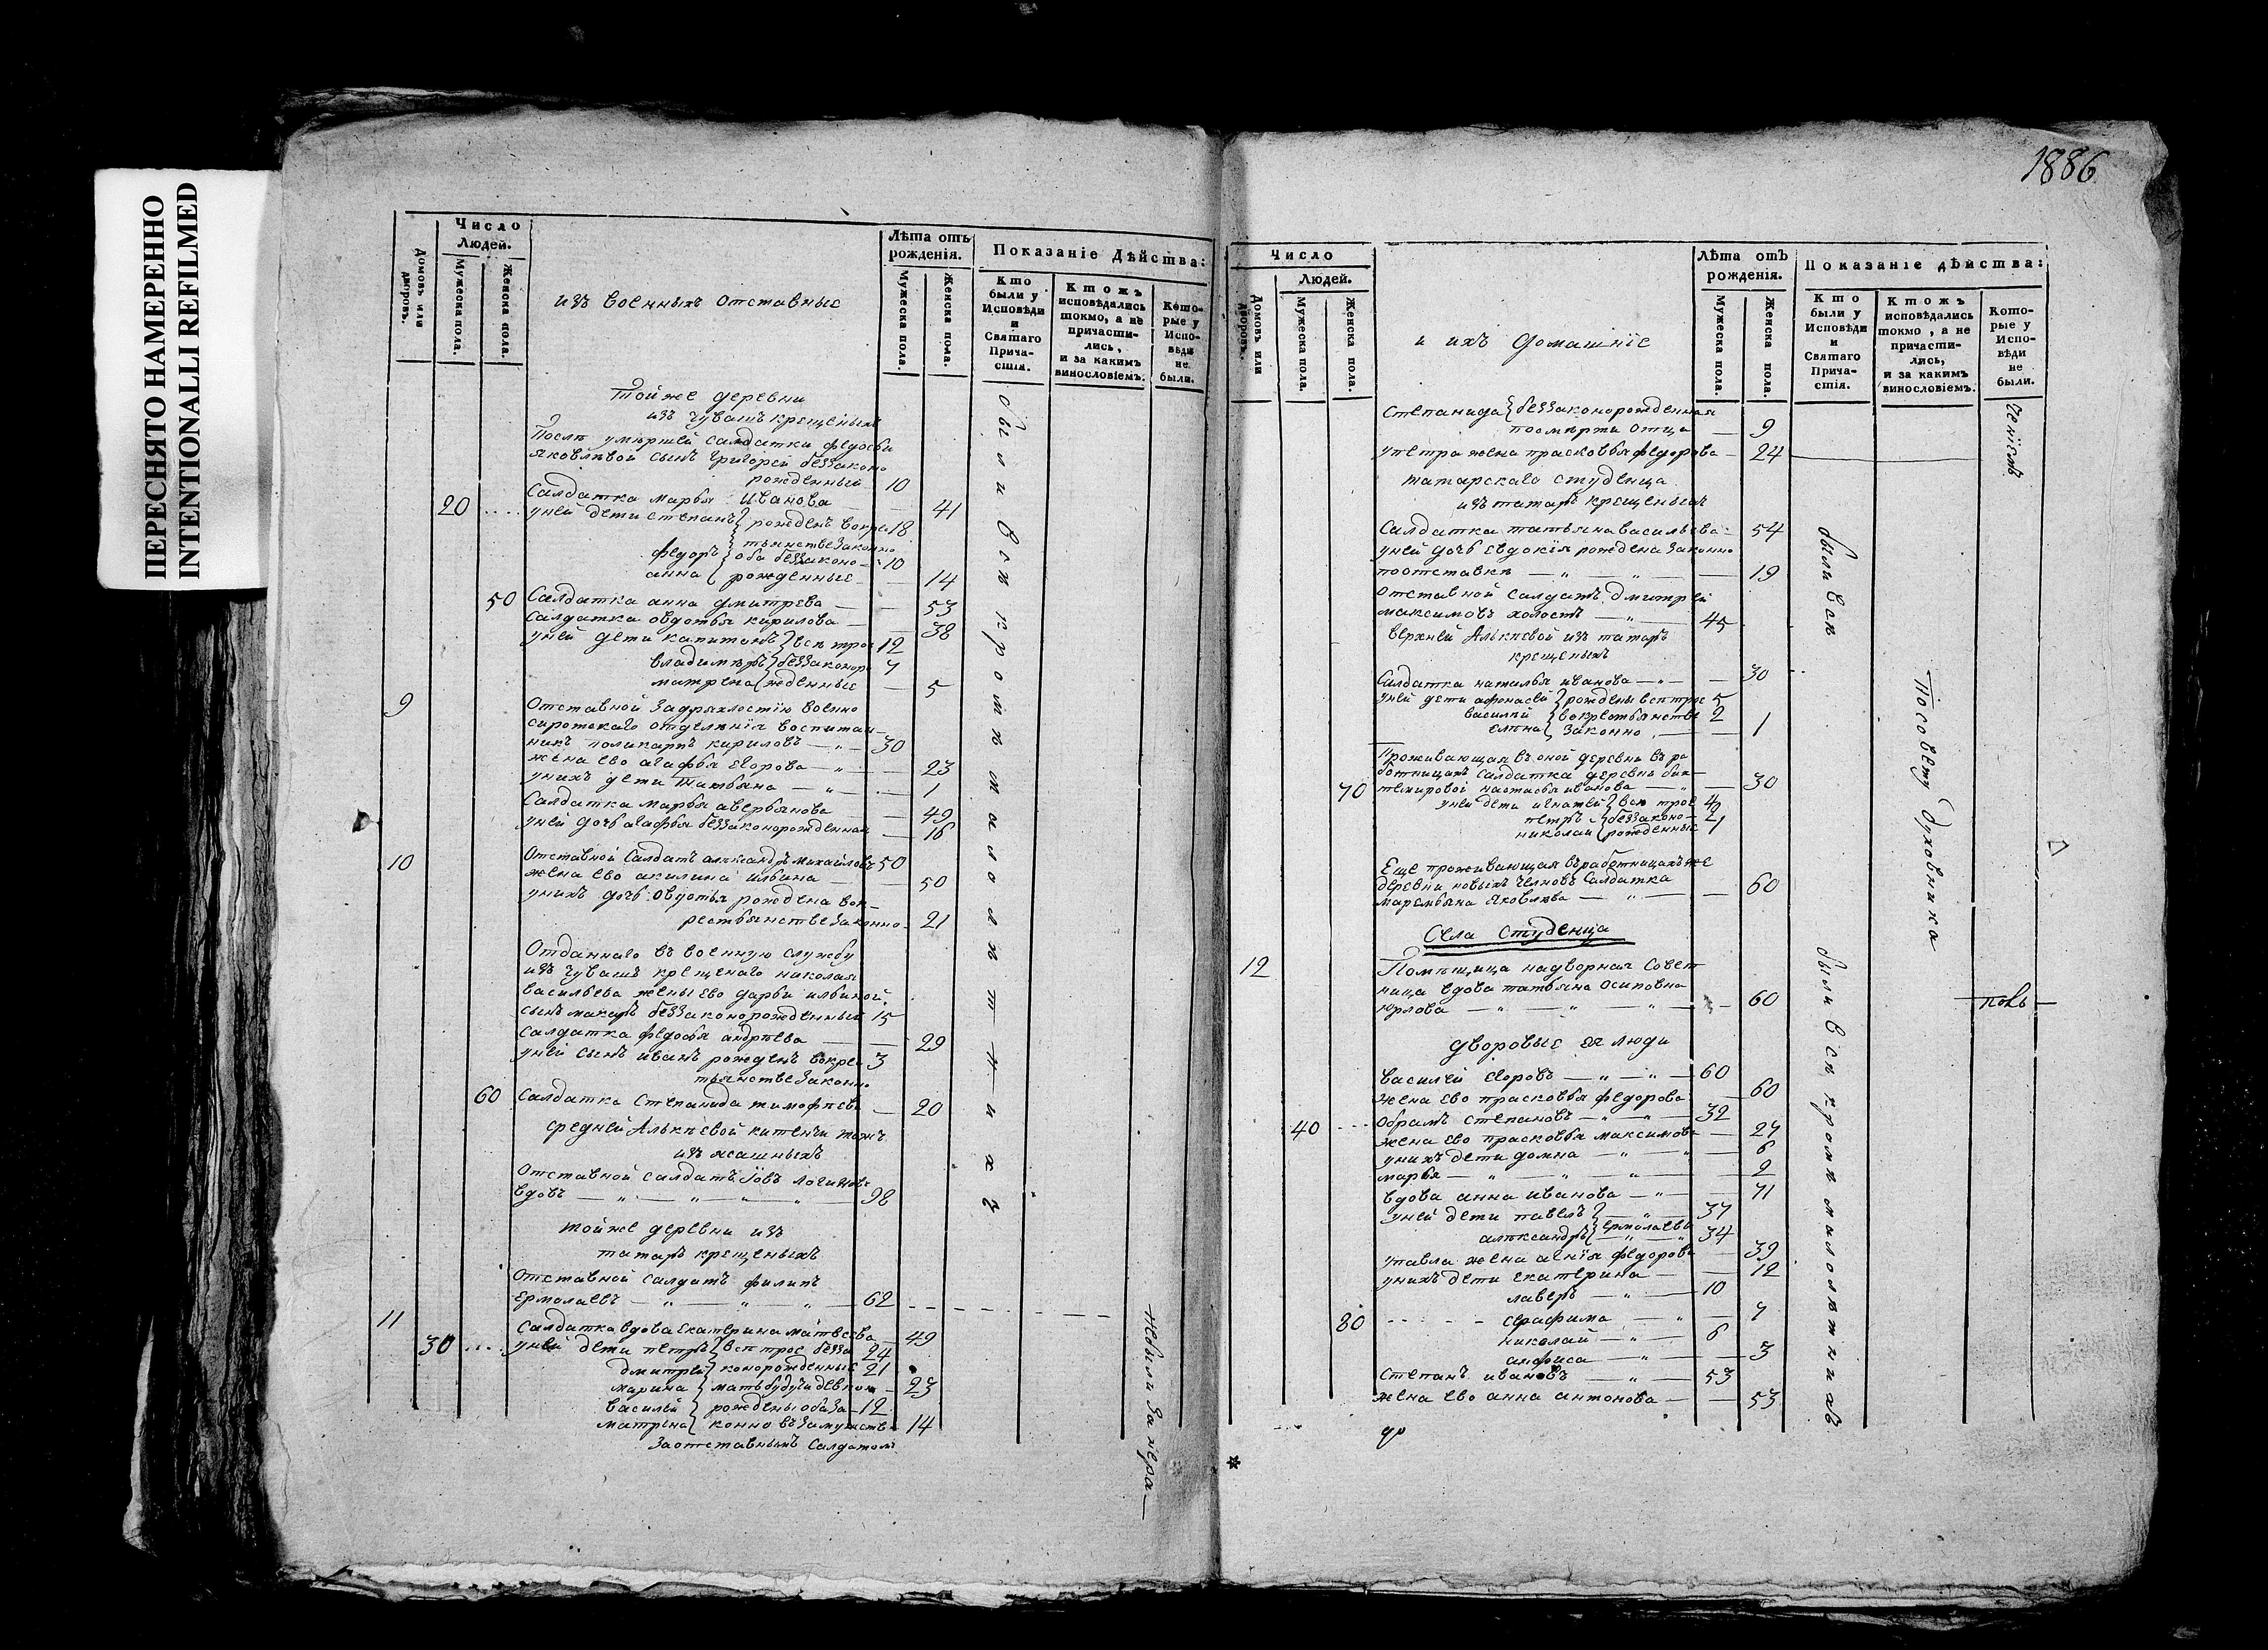 ПЕРЕСНЯТО НАМЕРЕННО
INTENTIONALLI REFILMED
Число
Людей.
Домовъ или дворовъ.
Мужеска пола.
Женска пола.
изъ военныхъ отставные
Лѣта отъ рожденія.
Мужеска пола.
Женска пола.
Показаніе Дѣйства:
Кто были у Исповѣди и Святаго Причастія.
Ктожъ исповѣдались токмо, а не причастились, и за какимъ винословіемъ.
Которые у Исповѣди не были.
Тойже деревни
изъ чувашъ крещеныхъ
Послѣ умершей салдатки федосьи
яковлевой сынъ григорей беззаконо
рожденный 10
Салдатка марья иванова 41
20 .... уней дети степанъ рожденъ вокрес 18
тьянстве законно
федоръ оба беззаконо 10
анна рожденные — 14
50 Салдатка анна дмитрева — — 53
Салдатка овдотья кирилова — 38
уней дети капитонъ все трое 12
владимеръ беззаконоро 7
матрена жденные — 5
9 Отставной задряхлостію военно
сиротскаго отделенія воспитан
никъ поликарпъ кириловъ — 30
жена ево агафья егорова — " — 23
унихъ дети татьяна — " — 1
Салдатка марья аверьянова — 49
уней дочь агафья беззаконорожденная — 16
10 Отставной Салдатъ александръ михайловъ 50
жена ево акилина ильина — 50
унихъ дочь овдотья рождена вок
рестьянстве законно 21
Отданнаго въ военную службу
изъ чувашъ крещенаго николая
васильева жены ево дарьи ильиной
сынъ макаръ беззаконорожденный 15
салдатка федосья андреева — 29
уней сынъ иванъ рожденъ вокрес 3
тьянстве законно
60 Салдатка Степанида тимофеева — 20
средней Алькеевой китенчи тожъ
изъ ясашныхъ
Отставной салдатъ Іовъ логиновъ
вдовъ — " — " — " — " 98
тойже деревни изъ
татаръ крещеныхъ
Отставной салдатъ филипъ
ермолаевъ — " — " — " — 62
11 Салдатка вдова Екатерина матвеева — 49
30 .... уней дети петръ все трое безза 24
дмитрей конорожденные 21
марина мать будучи девкою — 23
василей рождены оба за 12
матрена конно въ замужстве 14
заотставнымъ салдатомъ
были всѣ кромѣ малолѣтнихъ
Небыли за
1886
Число
Людей.
Домовъ или дворовъ.
Мужеска пола.
Женска пола.
и ихъ домашніе
Лѣта отъ рожденія.
Мужеска пола.
Женска пола.
Показаніе дѣйства:
Кто были у Исповѣди и Святаго Причастія.
Ктожъ исповѣдались токмо, а не причастились, и за какимъ винословіемъ.
Которые у Исповѣди не были.
Степанида беззаконорожденная
посмерти отца — 9
упетра жена прасковья федорова — 24
татарскаго студенца
изъ татаръ крещеныхъ
Салдатка татьяна васильева 54
уней дочь евдокія рождена законно
поотставке — " — " — 19
отставной салдатъ дмитрей
максимовъ холостъ — " — 45
верхней Алькеевой изъ татаръ
крещеныхъ
Салдатка наталья иванова — " — 30
уней дети афонасей рождены все трое 5
василей вокрестьянстве 2
елена законно — 1
Проживающая въ оной деревне въ ра
ботницахъ салдатка деревни бик
70 темировой настасья иванова — " — 30
уней дети игнатей все трое 4
петръ беззаконо 2
николай рожденные 1
Еще проживающая въ работницахъ же
деревни новыхъ челновъ Салдатка
маремьяна яковлева — " — 60
Села Студенца
12 Помещица надворная Совет
ница вдова татьяна осиповна
юрлова — " — " — " — 60
дворовые ея люди
василей егоровъ — " — " — 60
жена ево прасковья федорова — 60
40 --- обрамъ степановъ — " — 32
жена ево прасковья максимова — 27
унихъ дети домна — " — " — 6
марья — " — " — " — 2
вдова анна иванова — " — 71
уней дети павелъ — " — 37
ермолаевы
александръ — " — 34
упавла жена агнія федорова — 39
унихъ дети екатерина — 12
лаверъ — " — 10
80 - - - - серафима — " — 7
николай — " — 6
анфиса — " — 3
Степанъ ивановъ — " — 53
жена ево анна антонова — — 53
др
были всѣ
были всѣ кромѣ малолѣтнихъ
Посовѣту духовника